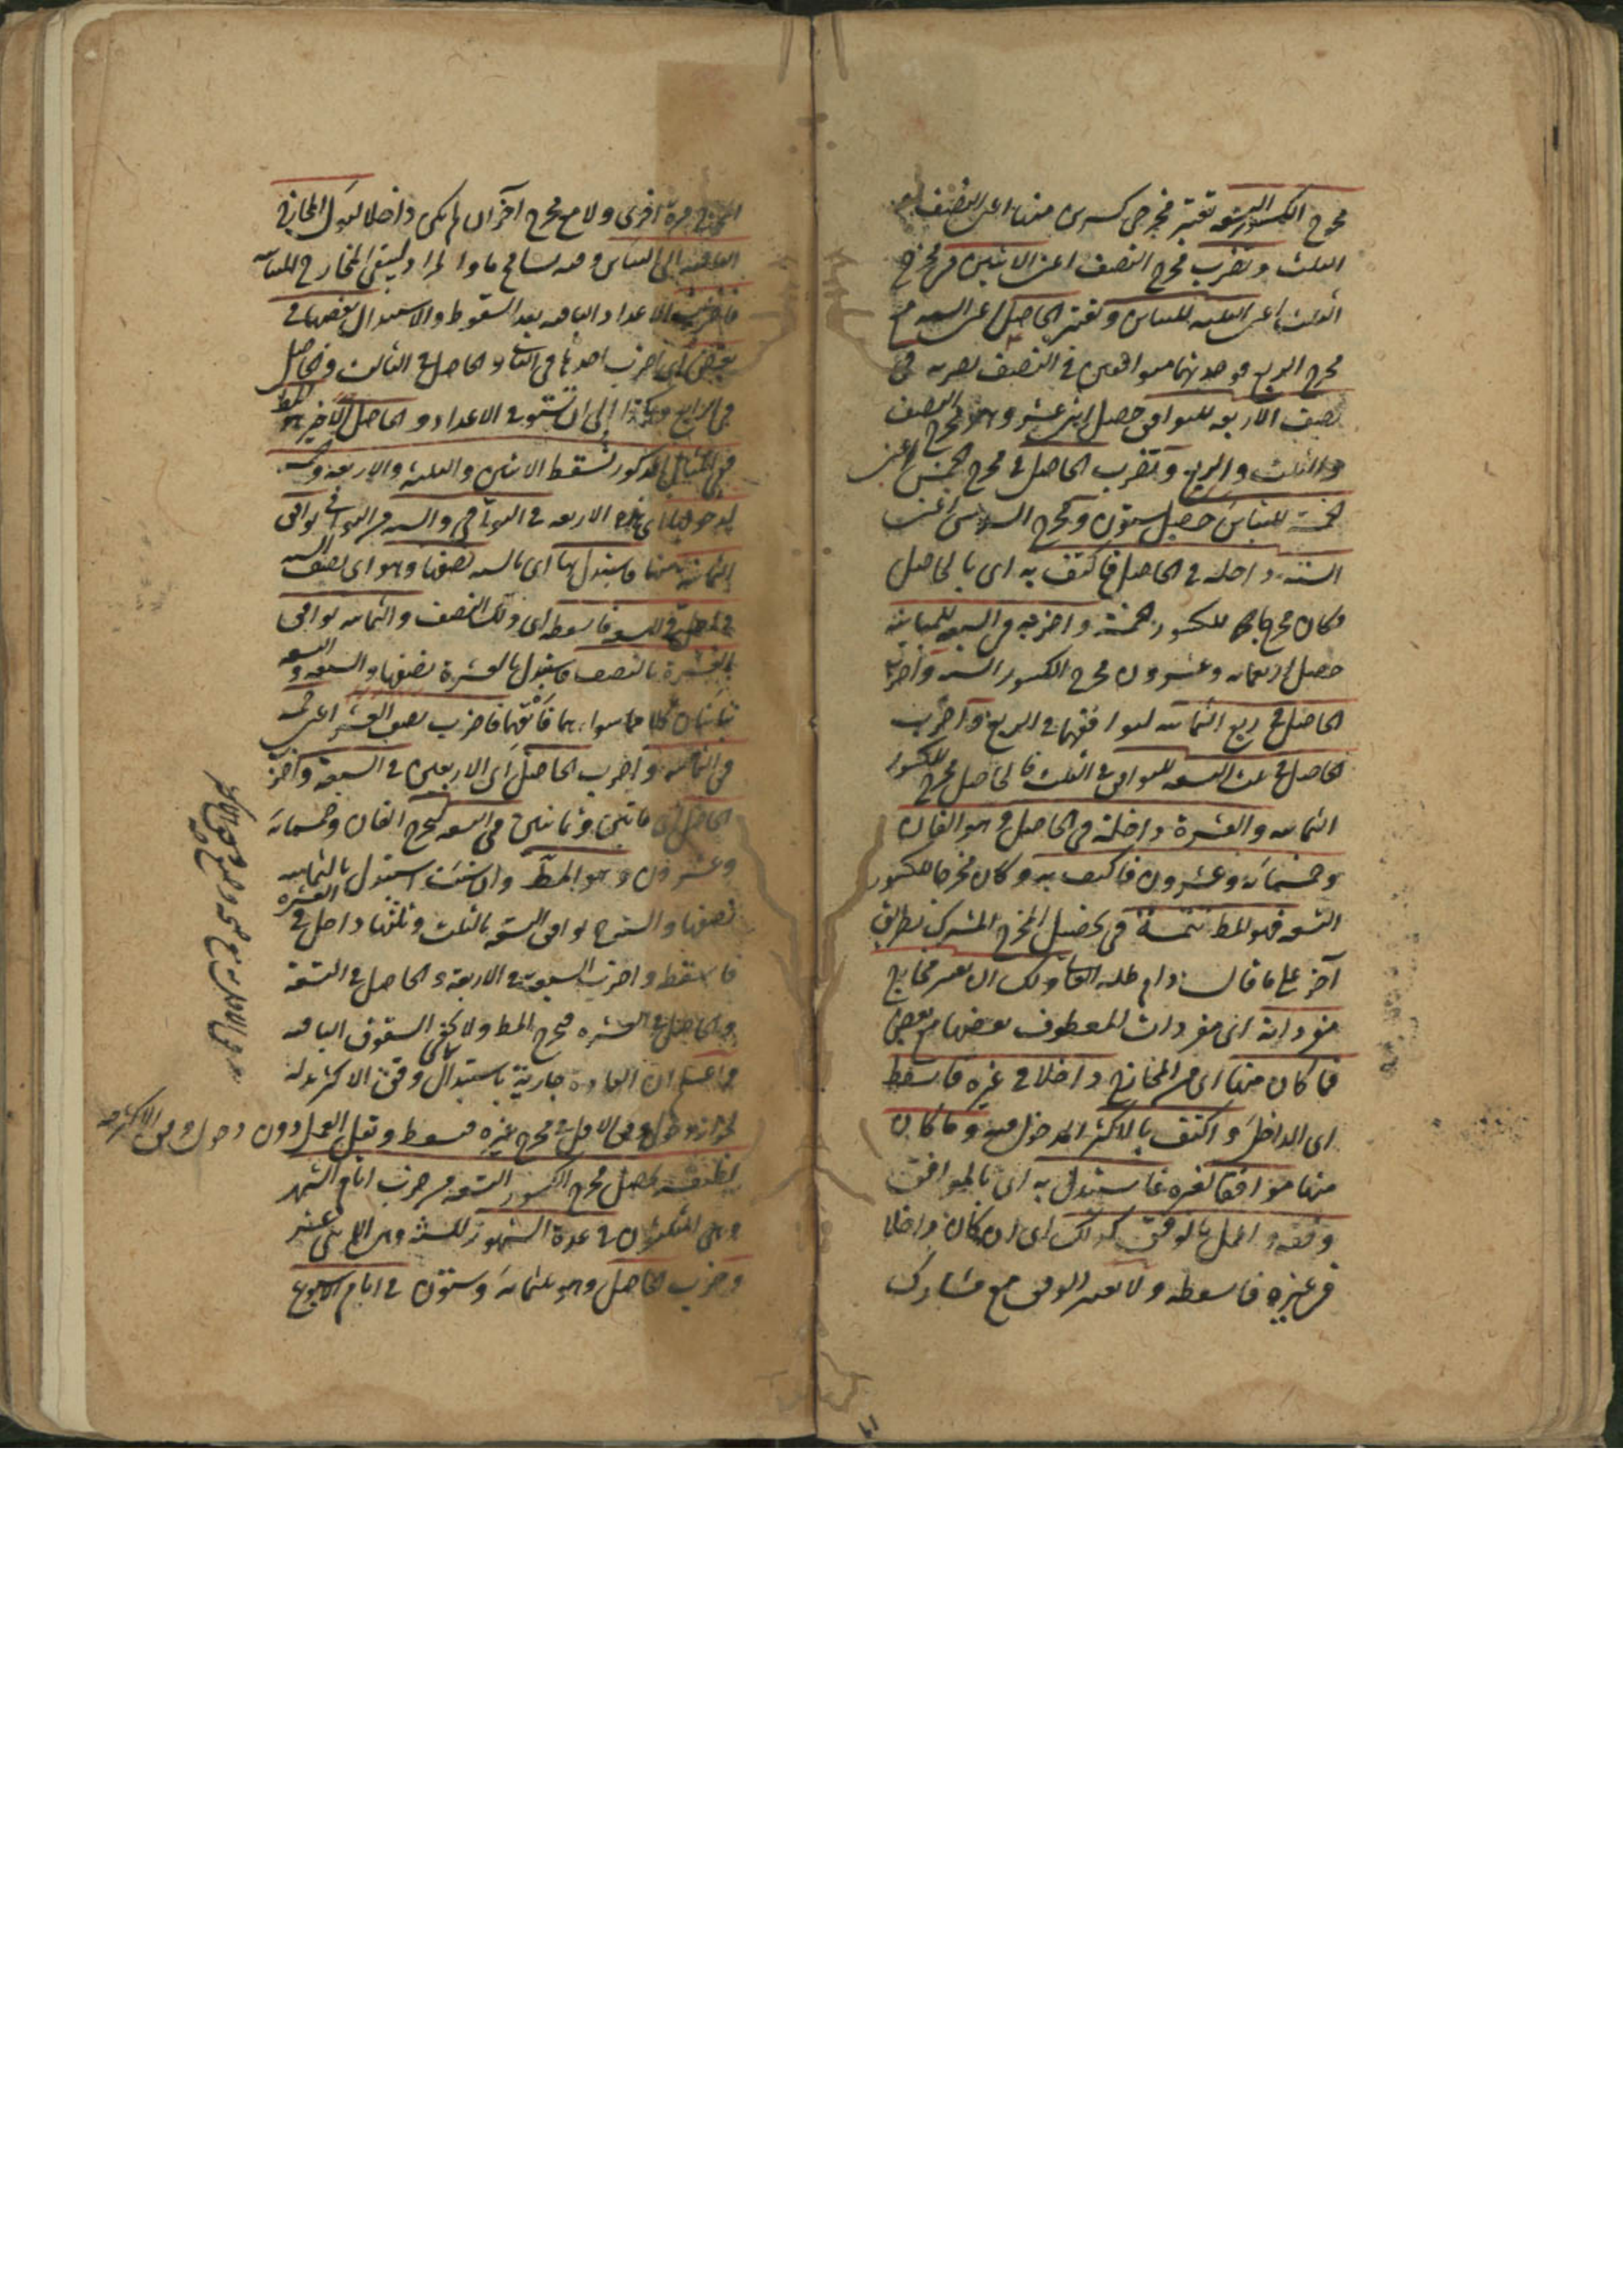 مخرج الكسور التسعه تعتبر مخرجى كسرين منها اعنى النصف و
الثلث وتضرب مخرج النصف اعنى الاثنين فى مخرج
الثلث اعنى الثلثه للتباين وتعتبر الحاصل اعنى السته مع
مخرج الربع فوجدتهما متوافقين فى النصف تضربه فى
نصف الاربعه للتوافق حصل اثنى عشر وهو مخرج النصف
والثلث والربع وتضرب الحاصل فى مخرج الخمس اعنى
الخمسة للتباين حصل ستون ومخرج السدس اعنى
الستة داخله فى الحاصل فاكتف به اى بالحاصل
فكان مخرجا للكسور الخمسة واضربه فى السبعه للمباينة
حصل اربعمائه وعشرون مخرج الكسور السته واضرب
الحاصل فى ربع الثمانيه لتوافقهما فى الربع واضرب
الحاصل فى ثلث التسعه للتوافق فى الثلث فالحاصل مخرج للكسور
الثمانيه والعشرة داخلة فى الحاصل وهو الفان
وخمسمائة وعشرون فاكتف به وكان مخرجا للكسور
التسعه فهو المط تتمة فى تحصيل المخرج المشترك بطريق
آخر على ما قال دام ظله ولك ان تعتبر مخارج
مفرداته اى مفردات المعطوف بعضها مع بعض
فما كان منها اى من المخارج داخلا فى غيره فاسقطه
اى الداخل واكتف بالاكثر المدخول فيه وما كان
منها موافقا لغيره فاستبدل به اى بالموافق
وفقه واعمل بالوفق كذلك اى ان كان داخلا
فى غيره فاسقطه ولا تعتبر الوفق مع مشارك
المخرج مرة اخرى ولا مع مخرج آخر ان لم يكن داخلا ليؤل المخارج
الباقيه الى التباين وفيه تسامح ما والمراد ليبقى المخارج المتباينه
فاضرب الاعداد الباقيه بعد السقوط والاستبدال بعضها فى
بعض اى اضرب احدها فى الثانى والحاصل فى الثالث والحاصل
فى الرابع وهكذا الى ان تستوى الاعداد والحاصل الاخير هو المط
فى المثال المذكور تسقط الاثنين والثلثه والاربعه والخمسه
لدخولها اى الاربعه فى البواقى والسته من البواقى توافق
الثمانيه بالنصف فاستبدل بها اى بالسته نصفها وهو اى نصف السته
داخل فى التسعه فاسقطه اى ذلك النصف والثمانيه توافق
العشرة بالنصف فاستبدل بالعشرة نصفها والسبعه والتسعه
تباينان كلا مما سواهما فابقهما فاضرب نصف العشره اعنى الخمسه
فى الثمانيه واضرب الحاصل اى الاربعين فى السبعة واضرب
الحاصل اى مائتين وثمانين فى التسعه ليخرج الفان وخمسمائة
وعشرون وهو المط وان شئت استبدل بالثمانيه
نصفها والستة توافق التسعة بالثلث وثلثها داخل فى العشره
فاسقط واضرب السبعة فى الاربعة والحاصل فى التسعة
والحاصل فى العشره فيخرج المط ولا يخفى السقوف الباقيه
واعلم ان العادة جارية باستبدال وفق الاكثر بدله
لجواز دخول وفق الاقل فى مخرج غيره فيسقط ويقل العمل دون دخول وفق الاكثر فيه
لطيفة يحصل مخرج الكسور التسعه من ضرب ايام الشهر
وهى الثلثون فى عدة الشهور للسنة وهى الاثنى عشر
وضرب الحاصل وهو ثلثمائة وستون فى ايام الاسبوع